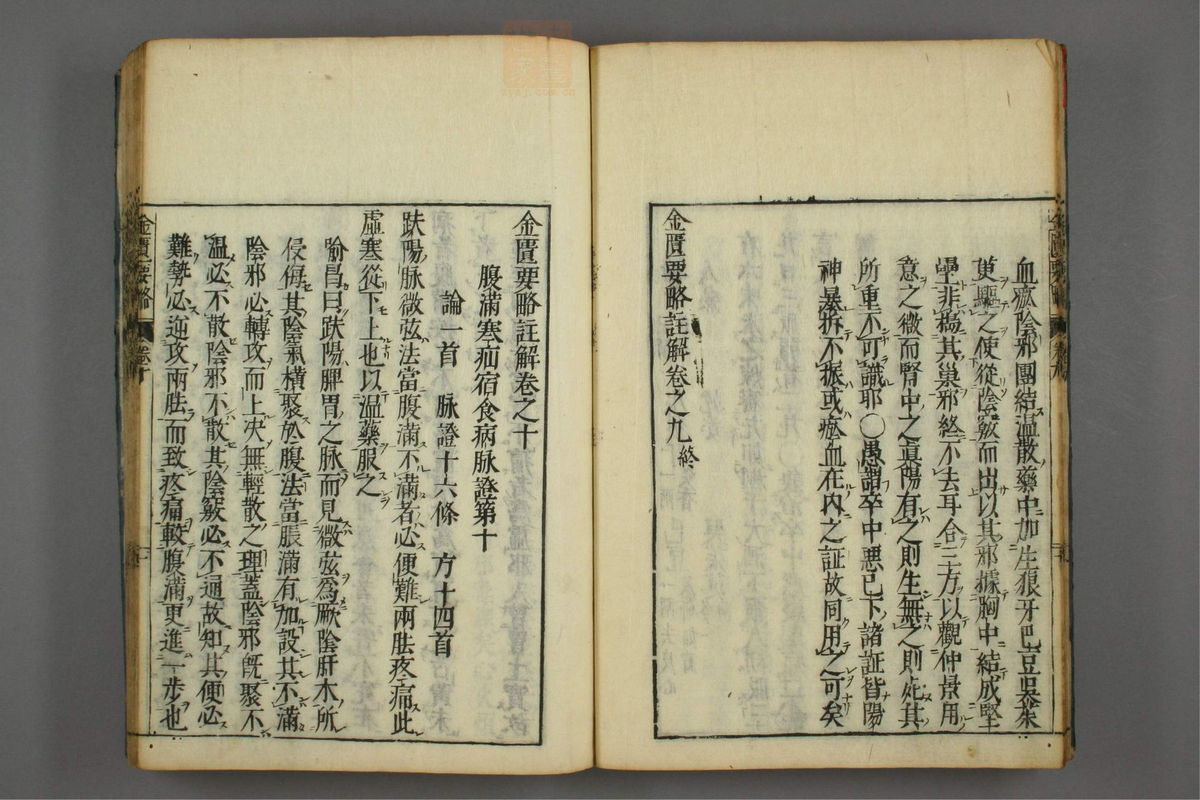 血瘀陰邪團結温散藥中加生狼牙巴豆吳茱
更驅之使從陰竅而出以其邪據胸中結成堅
壘非搗其巢邪終不去耳合三方以觀仲景用
意之微而腎中之真陽有之則生無之則死其
所重不可識耶○愚謂卒中惡已下諸証皆陽
神暴拆不振或瘀血在内之証故同用之可矣
金匱要略註解卷之九終
金匱要略註解卷之十
腹滿寒疝宿食病脉證第十
論一首 脉證十六條 方十四首
趺陽脉微弦法當腹滿不滿者必便難兩胠疼痛此
虛寒從下上也以温藥服之
喻昌曰趺陽脾胃之脉而見微弦爲厥陰肝木所
侵侮其陰氣橫聚於腹法當脹滿有加設其不滿
陰邪必轉攻而上决無輕散之理蓋陰邪既聚不
温必不散陰邪不散其陰竅必不通故知其便必
難勢必逆攻兩胠而致疼痛較腹滿更進一步也
金匱要略 卷十